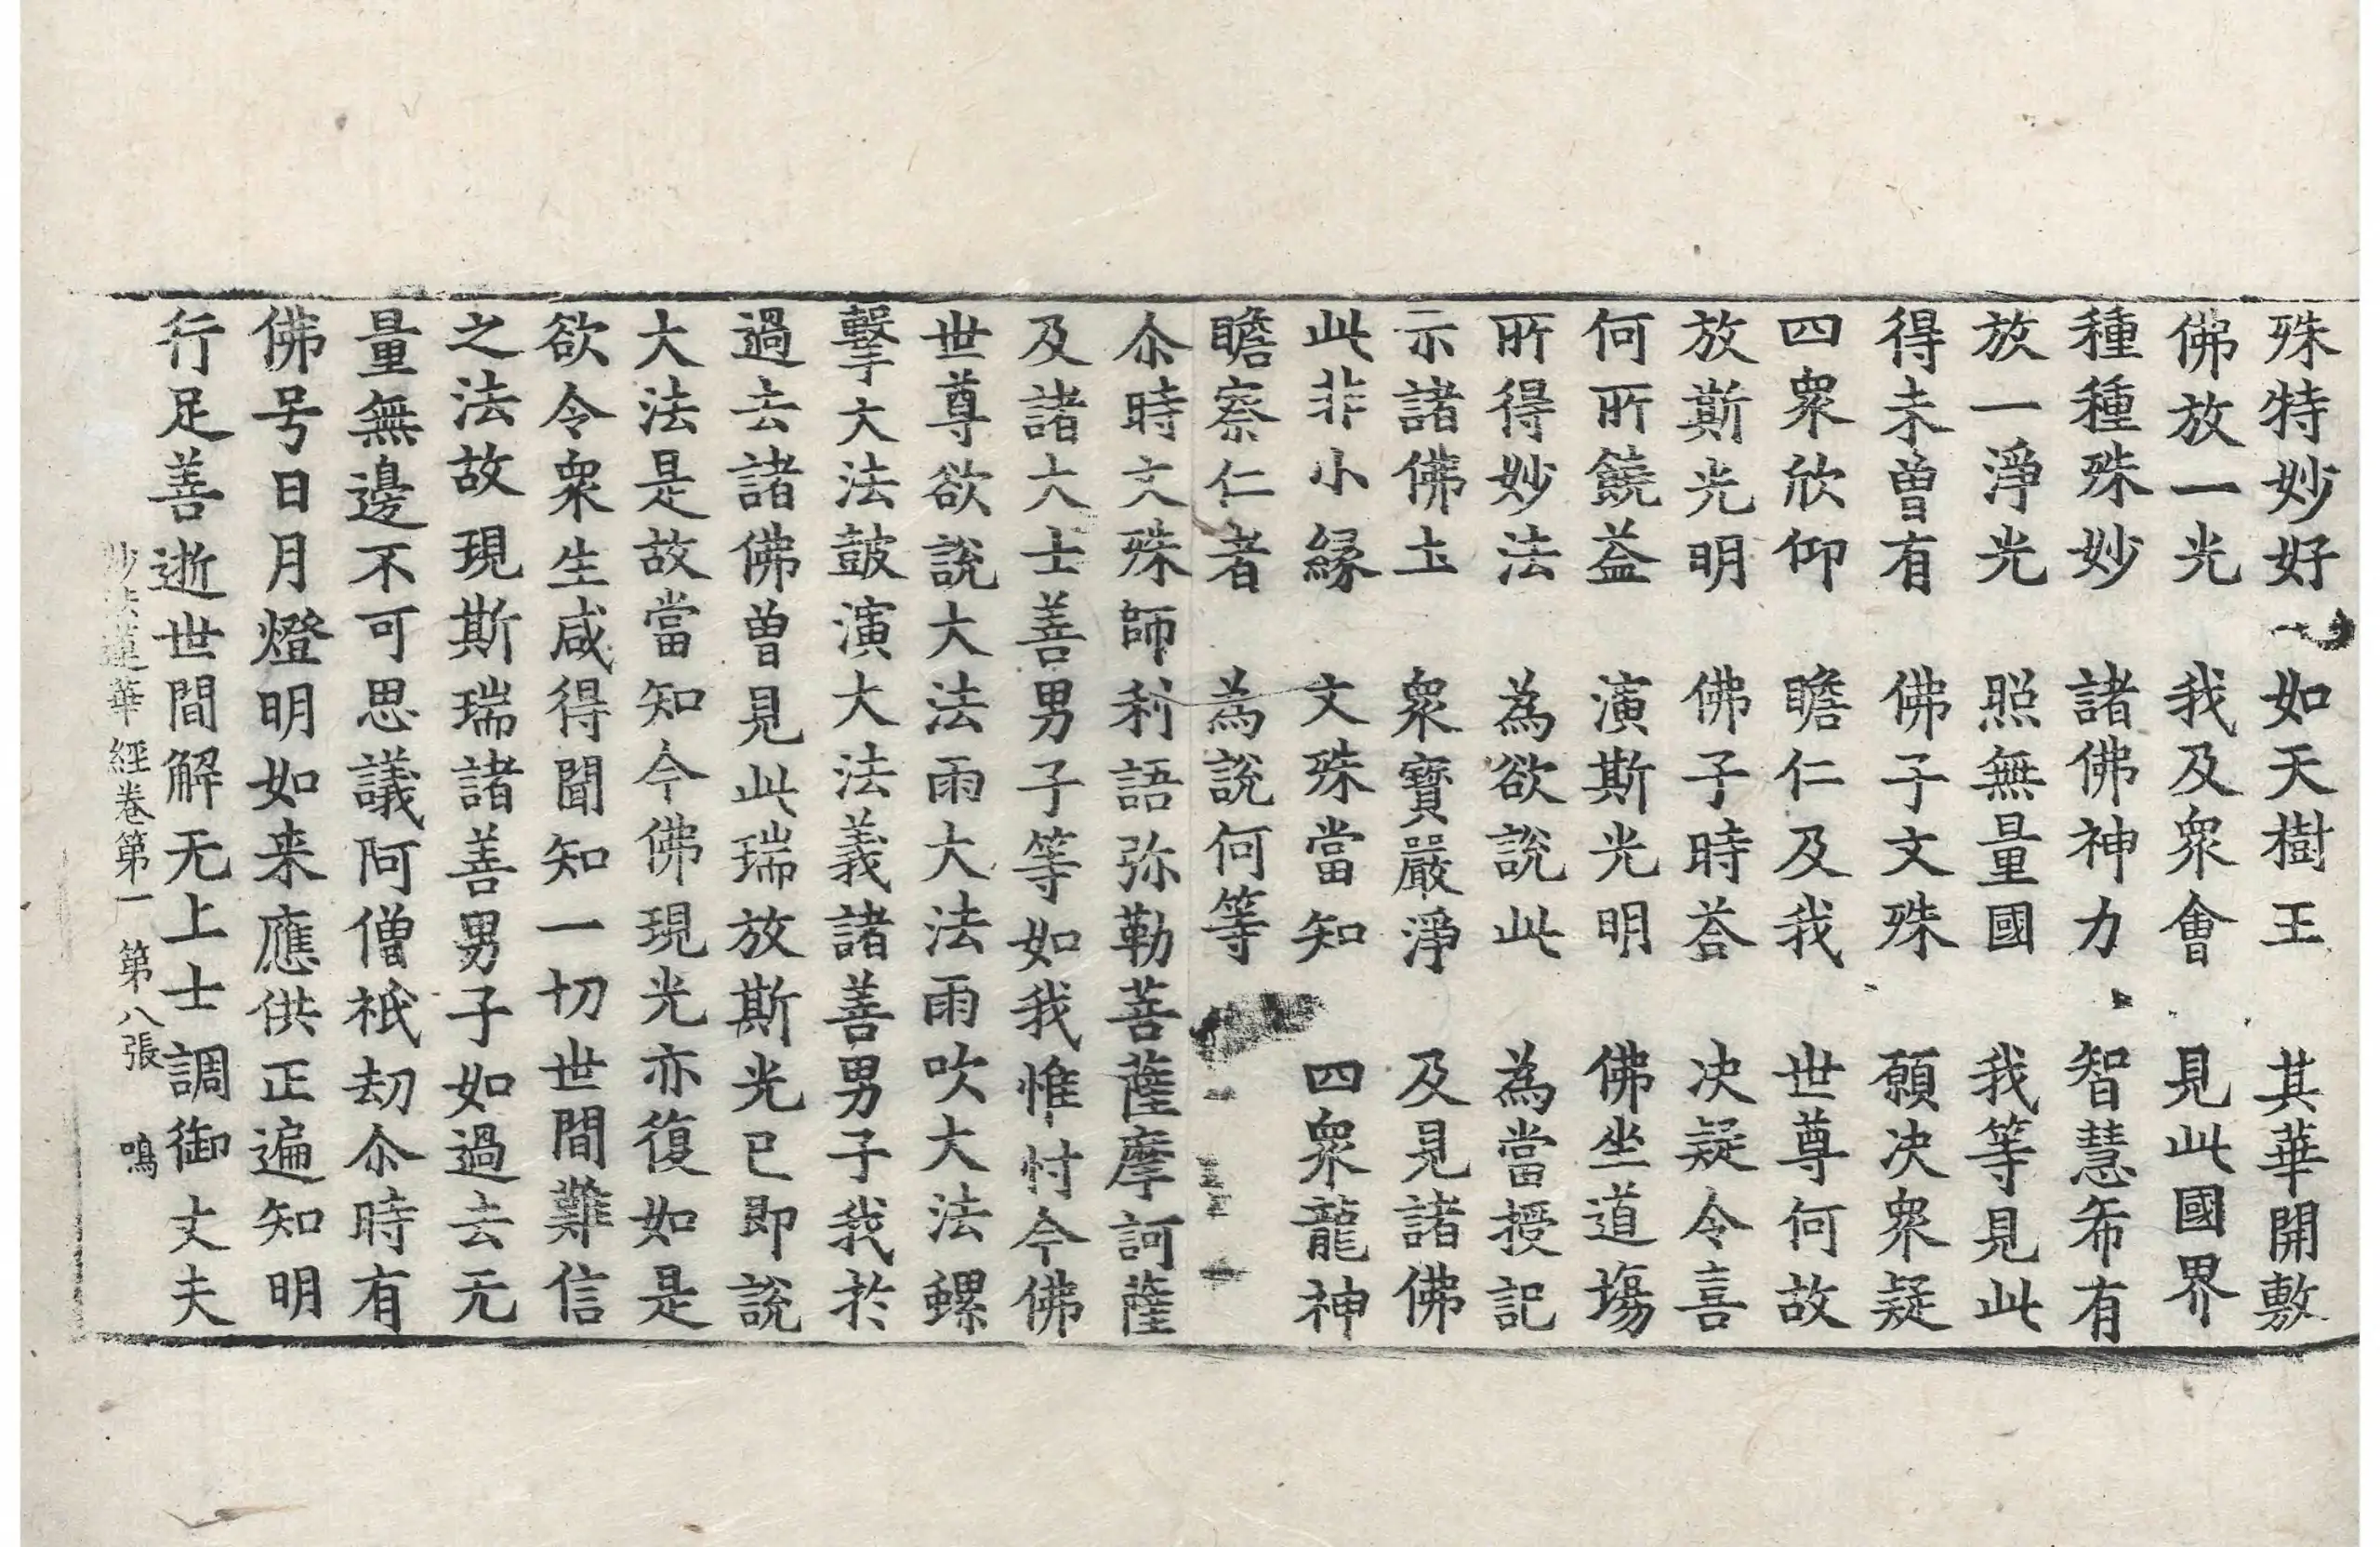 殊特妙好　如天樹王　其華開敷
佛放一光　我及衆會　見此國界
種種殊妙　諸佛神力　智慧希有
放一淨光　照無量國　我等見此
得未曾有　佛子文殊　願决衆疑
四衆欣仰　瞻仁及我　世尊何故
放斯光明　佛子時荅　决疑令喜
何所饒益　演斯光明　佛坐道場
所得妙法　為欲說此　為當授記
示諸佛土　衆寶嚴淨　及見諸佛
此非小緣　文殊當知　四衆龍神
瞻察仁者　為說何等
尒時文殊師利語弥勒菩薩摩訶薩
及諸大士善男子等如我惟忖今佛
世尊欲說大法雨大法雨吹大法螺
擊大法鼓演大法義諸善男子我於
過去諸佛曾見此瑞放斯光已即說
大法是故當知今佛現光亦復如是
欲令衆生咸得聞知一切世間難信
之法故現斯瑞諸善男子如過去无
量無邊不可思議阿僧祇劫尒時有
佛号日月燈明如来應供正遍知明
行足善逝世間解无上士調御丈夫
妙法蓮華經卷第一　第八張　鳴